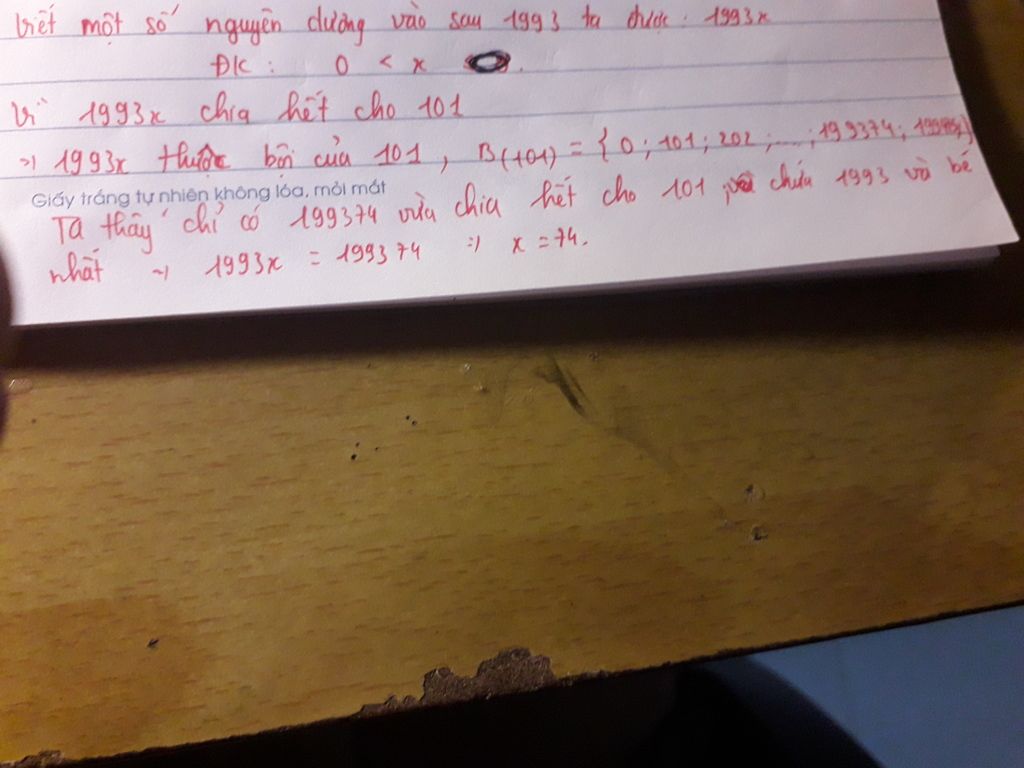 Viết một số nguyên dương vào sau 1993 ta được: 1993x
ĐK: 0 < x
Vì 1993x chia hết cho 101
=> 1993x thuộc bội của 101, B(101) = {0; 101; 202; ...; 199374;
Giấy trắng tự nhiên không lóa, mỏi mắt
Ta thấy chỉ có 199374 vừa chia hết cho 101 chứa 1993 và bé
nhất => 1993x = 199374 => x = 74.